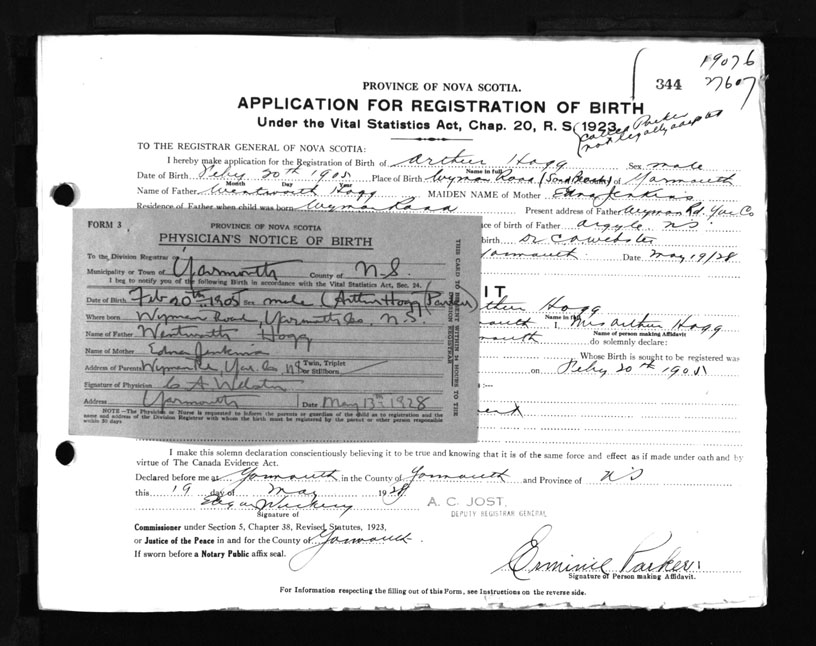 19076
344 27607
PROVINCE OF NOVA SCOTIA.
APPLICATION FOR REGISTRATION OF BIRTH
Under the Vital Statistics Act, Chap. 20, R. S. 1923
(called Parker
not legally adopted
TO THE REGISTRAR GENERAL OF NOVA SCOTIA:
I hereby make application for the Registration of Birth of Arthur Hogg Sex male
Name in full
Date of Birth Feby 20th 1905 Place of Birth Wyman Road County of Yarmouth
Month Day Year
Name of Father Wentworth Hogg MAIDEN NAME of Mother Edna Jenkins
Residence of Father when child was born Wyman Road Present address of Father Wyman Rd. Yar Co
ce of birth of Father Argyle N S
birth Dr C A Webster
Yarmouth Date May 19/28
FORM 3
PROVINCE OF NOVA SCOTIA
PHYSICIAN'S NOTICE OF BIRTH
To the Division Registrar of
Municipality or Town of Yarmouth County of N.S.
I beg to notify you of the following Birth in accordance with the Vital Statistics Act, Sec. 24.
Date of Birth Feb 20th 1905 Sex male (Arthur Hogg (Parker)
Where born Wyman Road, Yarmouth Co. N.S.
Name of Father Wentworth Hogg
Name of Mother Edna Jenkins
Address of Parents Wyman Rd, Yar. Co. NS Twin, Triplet
or Stillborn
Signature of Physician C A Webster
Address Yarmouth Date May 13th 1928
NOTE—The Physician or Nurse is requested to inform the parents or guardian of the child as to registration and the
name and address of the Division Registrar with whom the birth must be registered by the parent or other person responsible
within 30 days
THIS CARD TO BE SENT WITHIN 24 HOURS TO THE
DIVISION REGISTRAR
IT
thur Hogg
Name in full
mouth I, Mrs Arthur Hogg
Name of person making Affidavit
mouth do solemnly declare:
Whose Birth is sought to be registered was
on Feby 20th 1905
I make this solemn declaration conscientiously believing it to be true and knowing that it is of the same force and effect as if made under oath and by
virtue of The Canada Evidence Act.
Declared before me at Yarmouth in the County of Yarmouth and Province of N S
this 19 day of May 1928
A. C. JOST,
DEPUTY REGISTRAR GENERAL
Signature of
Commissioner under Section 5, Chapter 38, Revised Statutes, 1923,
or Justice of the Peace in and for the County of Yarmouth
If sworn before a Notary Public affix seal.
Erminie Parker
Signature of Person making Affidavit.
For Information respecting the filling out of this Form, see Instructions on the reverse side.